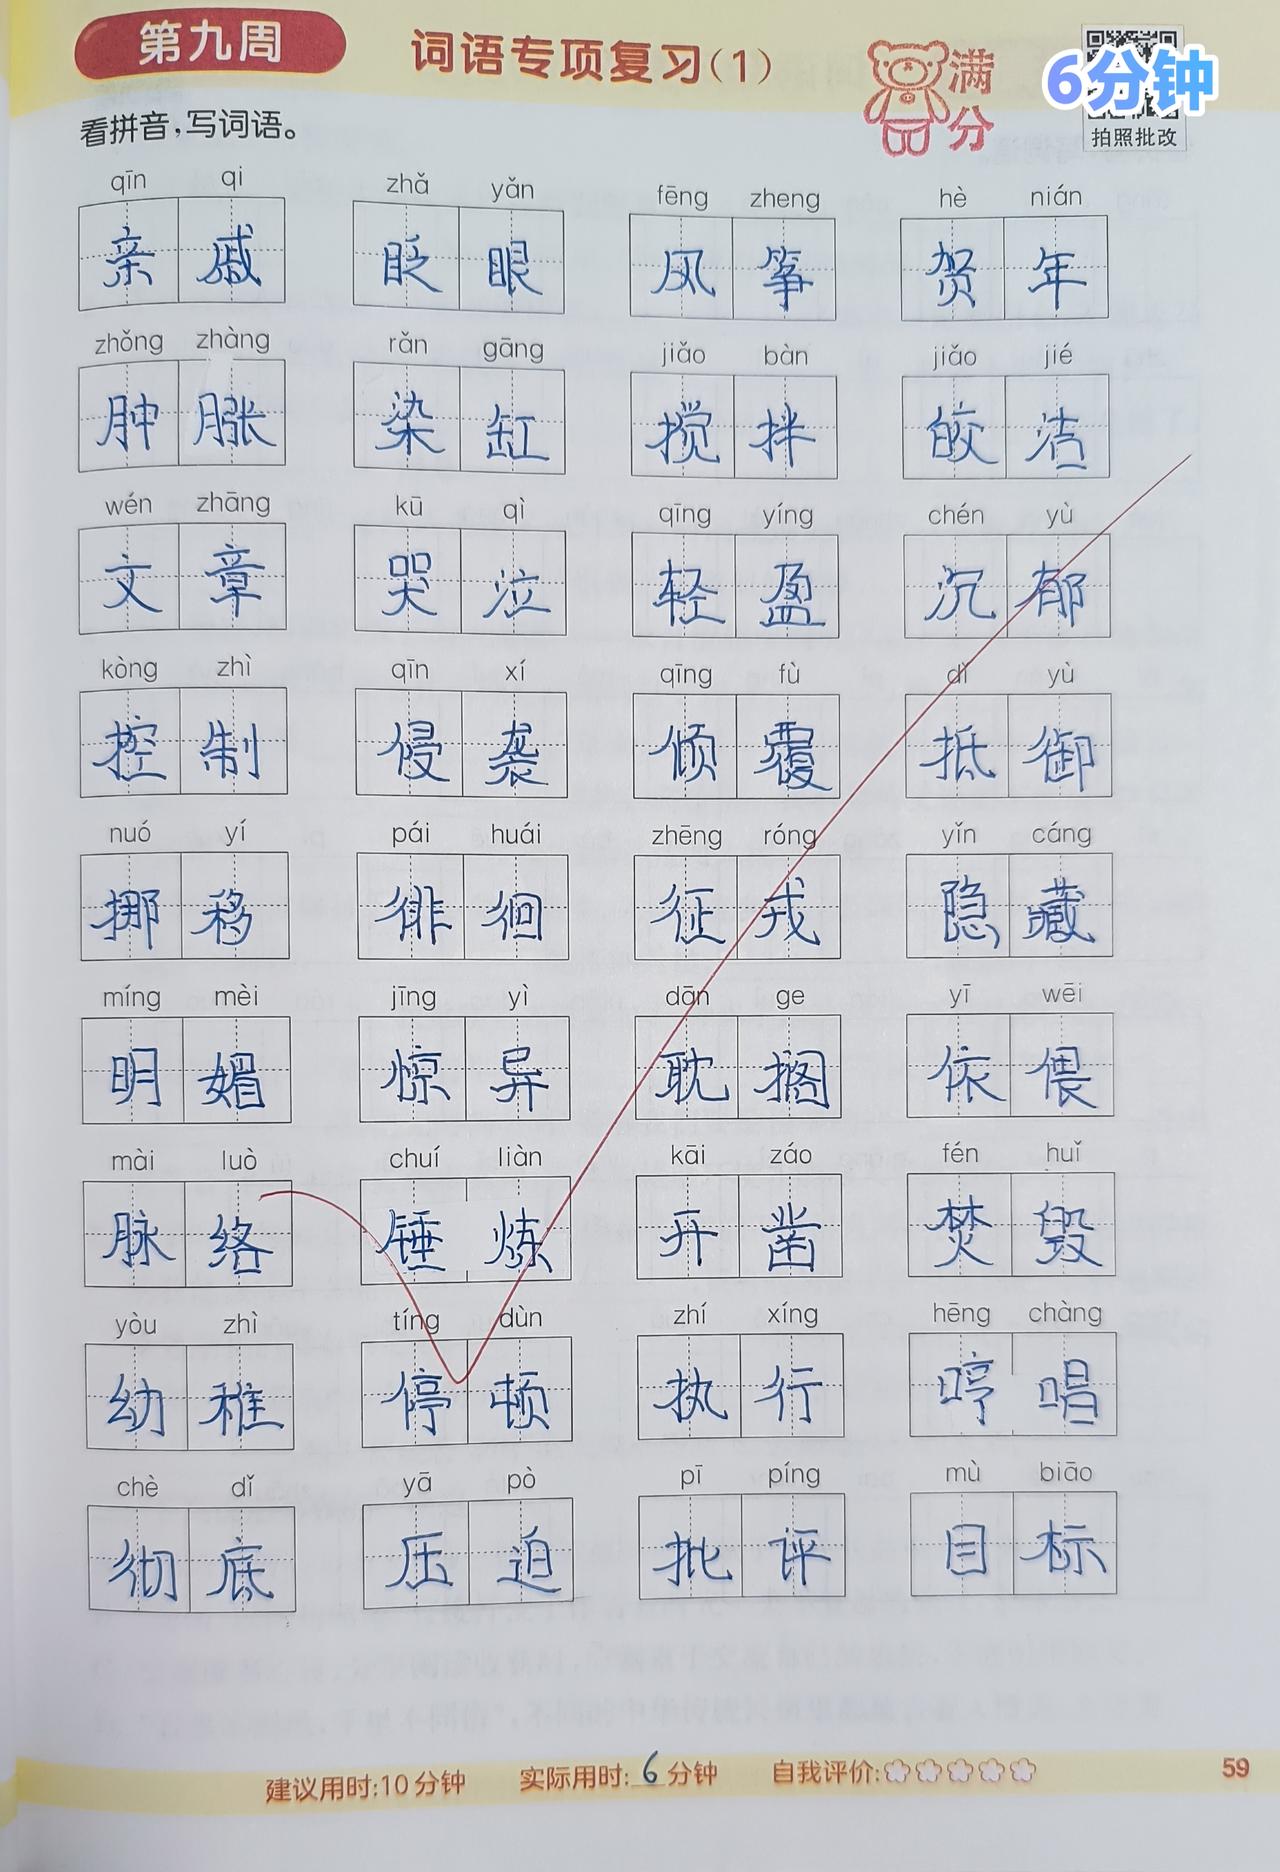 第九周
词语专项复习(1)
满分
6分钟
拍照批改
看拼音,写词语。
qīn qi zhǎ yǎn fēng zheng hè nián
亲戚 眨眼 风筝 贺年
zhǒng zhàng rǎn gāng jiǎo bàn jiǎo jié
肿胀 染缸 搅拌 皎洁
wén zhāng kū qì qīng yíng chén yù
文章 哭泣 轻盈 沉郁
kòng zhì qīn xí qīng fù dǐ yù
控制 侵袭 倾覆 抵御
nuó yí pái huái zhēng róng yǐn cáng
挪移 徘徊 征戎 隐藏
míng mèi jīng yì dān ge yī wēi
明媚 惊异 耽搁 依偎
mài luò chuí liàn kāi záo fén huǐ
脉络 锤炼 开凿 焚毁
yòu zhì tíng dùn zhí xíng hēng chàng
幼稚 停顿 执行 哼唱
chè dǐ yā pò pī píng mù biāo
彻底 压迫 批评 目标
建议用时:10分钟 实际用时:6分钟 自我评价:
59